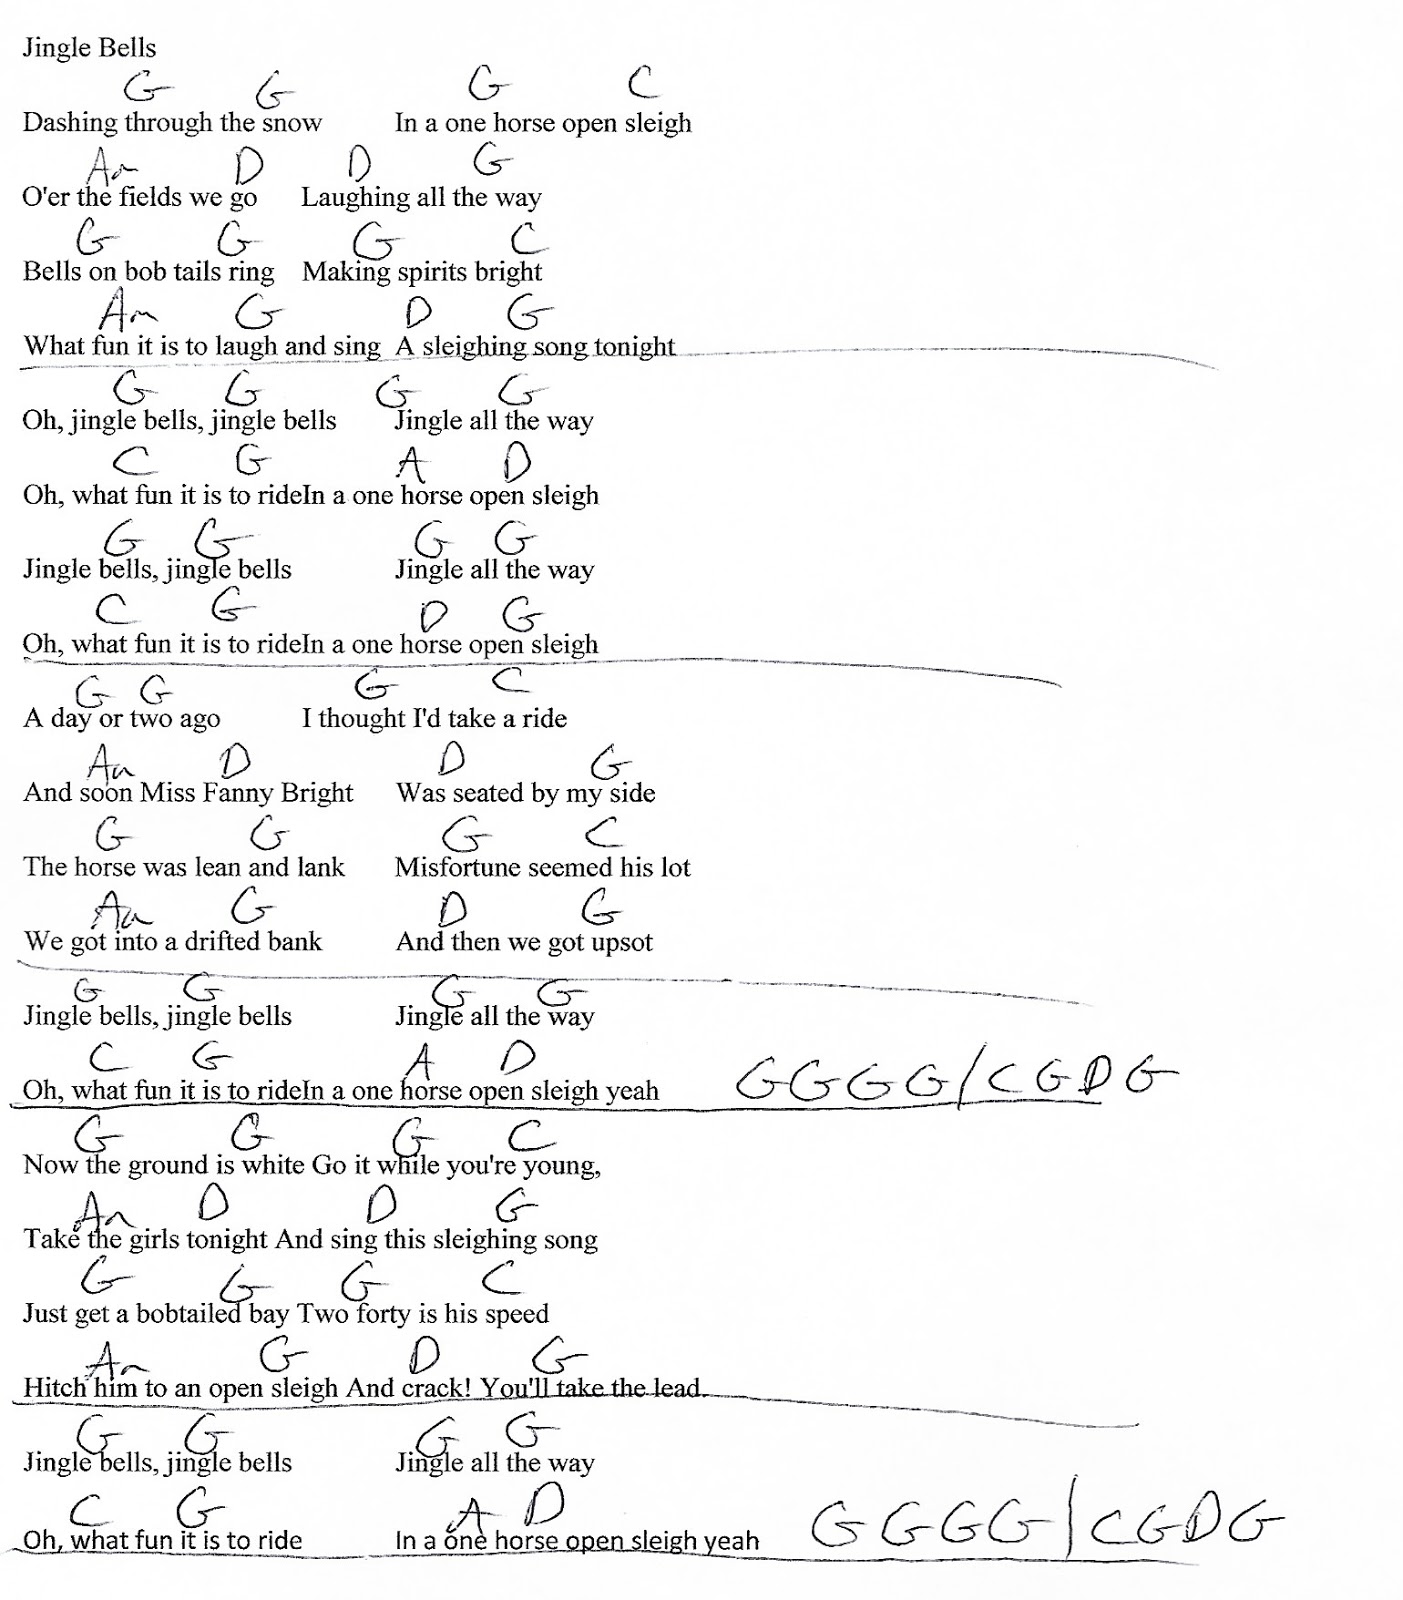 Jingle Bells
G G G C
Dashing through the snow In a one horse open sleigh
Am D D G
O'er the fields we go Laughing all the way
G G G C
Bells on bob tails ring Making spirits bright
Am G D G
What fun it is to laugh and sing A sleighing song tonight
G G G G
Oh, jingle bells, jingle bells Jingle all the way
C G A D
Oh, what fun it is to rideIn a one horse open sleigh
G G G G
Jingle bells, jingle bells Jingle all the way
C G D G
Oh, what fun it is to rideIn a one horse open sleigh
G G G C
A day or two ago I thought I'd take a ride
Am D D G
And soon Miss Fanny Bright Was seated by my side
G G G C
The horse was lean and lank Misfortune seemed his lot
Am G D G
We got into a drifted bank And then we got upsot
G G G G
Jingle bells, jingle bells Jingle all the way
C G A D
Oh, what fun it is to rideIn a one horse open sleigh yeah GGGG/CGDG
G G G C
Now the ground is white Go it while you're young,
Am D D G
Take the girls tonight And sing this sleighing song
G G G C
Just get a bobtailed bay Two forty is his speed
Am G D G
Hitch him to an open sleigh And crack! You'll take the lead.
G G G G
Jingle bells, jingle bells Jingle all the way
C G A D
Oh, what fun it is to ride In a one horse open sleigh yeah GGGG/CGDG